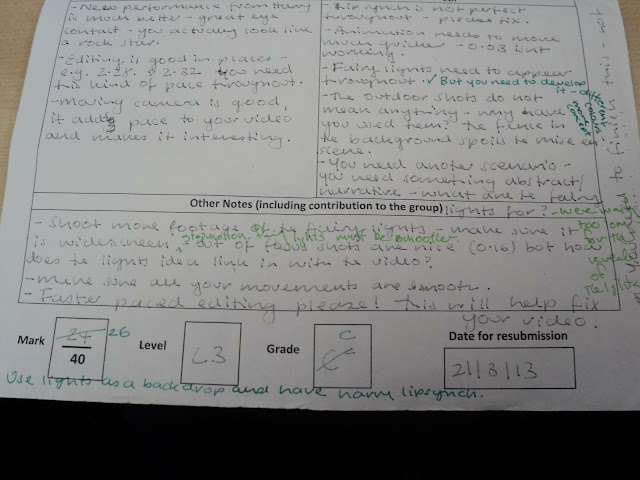 - New performance from Harry
is much better - great eye
contact - you actually look like
a rock star.
- Editing is good in places -
e.g. 2.28. & 2.32 you need
this kind of pace throughout.
- Moving camera is good,
it adds pace to your video
and makes it interesting.
- Lip synch is not perfect
throughout - please fix.
- Animation needs to move
much quicker - 0.03 isnt
working.
- Fairy lights need to appear
throughout. ✓ But you need to develop
it
- The outdoor shots do not
mean anything - why have
you used them? The fence in
the background spoils the mise en
scene.
- You need another scenario -
you need something abstract/
narrative - what are the fairy
lights for?
Other Notes (including contribution to the group)
- Shoot more footage of the fairy lights - make sure it
stopmotion fairy lights must be smoother.
is widescreen, out of focus shots are nice (0.16) but how
does the lights idea link in with the video?
- Make sure all your movements are smooth.
- Faster paced editing please! This will help fix
your video.
Mark 27 26
40
Level L3
Grade C C
Date for resubmission
21/3/13
Use lights as a backdrop and have harry lipsynch.